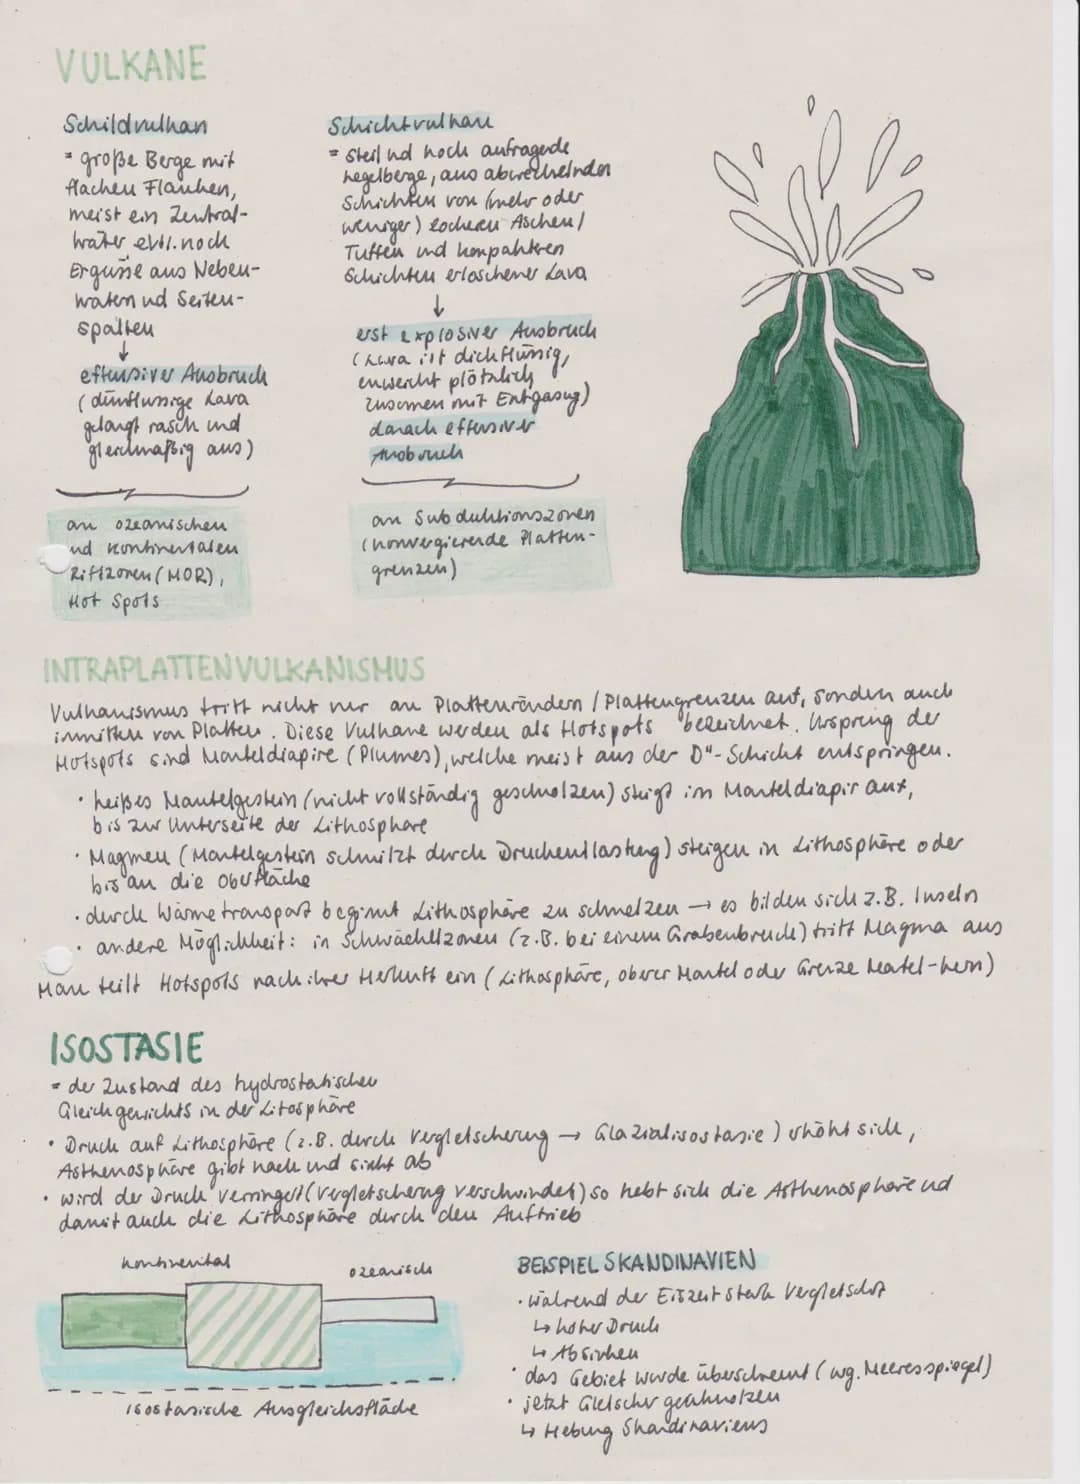 VULKANE
Schildvulkan
= große Berge mit
flachen Flanken,
meist ein Zentral-
krater evtl. noch
Ergüsse aus Neben-
kratern und Seiten-
spalten
↓
effusiver Ausbruch
(dünnflüssige Lava
gelangt rasch und
gleichmäßig aus)
an ozeanischen
und kontinentalen
Riftzonen (MOR),
Hot Spots
Schichtvulkan
= steil und hoch aufragende
Kegelberge, aus abwechselnden
Schichten von (mehr oder
weniger) lockeren Aschen/
Tuffen und kompakteren
Schichten erloschener Lava
↓
erst explosiver Ausbruch
(Lava ist dickflüssig,
entweicht plötzlich
zusammen mit Entgasung)
danach effusiver
Ausbruch
an Subduktionszonen
(konvergierende Platten-
grenzen)
INTRAPLATTENVULKANISMUS
Vulkanismus tritt nicht nur an Plattenrändern / Plattengrenzen auf, sondern auch
inmitten von Platten. Diese Vulkane werden als Hotspots bezeichnet. Ursprung der
Hotspots sind Manteldiapire (Plumes), welche meist aus der D"-Schicht entspringen.
· heißes Mantelgestein (nicht vollständig geschmolzen) steigt im Manteldiapir auf,
bis zur Unterseite der Lithosphäre
· Magmen (Mantelgestein schmilzt durch Druckentlastung) steigen in Lithosphäre oder
bis an die Oberfläche
· durch Wärmetransport beginnt Lithosphäre zu schmelzen → es bilden sich z.B. Inseln
· andere Möglichkeit: in Schwächezonen (z.B. bei einem Grabenbruch) tritt Magma aus
Man teilt Hotspots nach ihrer Herkunft ein (Lithosphäre, oberer Mantel oder Grenze Mantel-Kern)
ISOSTASIE
= der Zustand des hydrostatischen
Gleichgewichts in der Litosphäre
· Druck auf Lithosphäre (z.B. durch Vergletscherung → Glazialisostasie) erhöht sich,
Asthenosphäre gibt nach und sinkt ab
· wird der Druck verringert (Vergletscherung verschwindet) so hebt sich die Asthenosphäre und
damit auch die Lithosphäre durch den Auftrieb
kontinental
ozeanisch
isostasische Ausgleichsfläche
BEISPIEL SKANDINAVIEN
· während der Eiszeit stark vergletschert
↳ hoher Druck
↳ Absinken
· das Gebiet wurde überschwemmt (wg. Meeresspiegel)
· jetzt Gletscher geschmolzen
↳ Hebung Skandinaviens